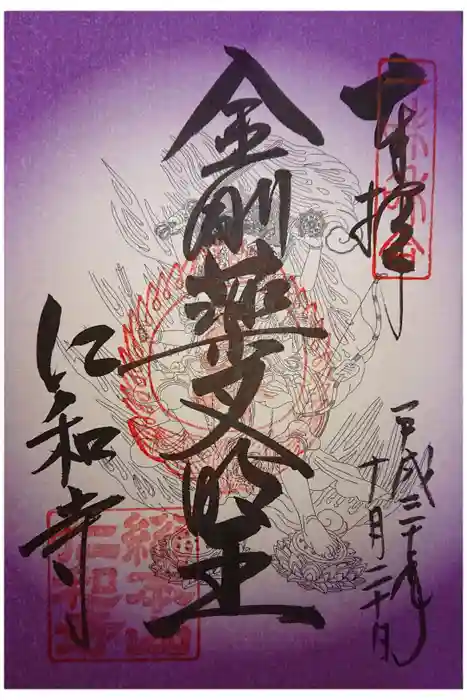 奉拝
平成三十年
十月二十日
金剛薬叉明王
仁和寺
総本山
仁和寺